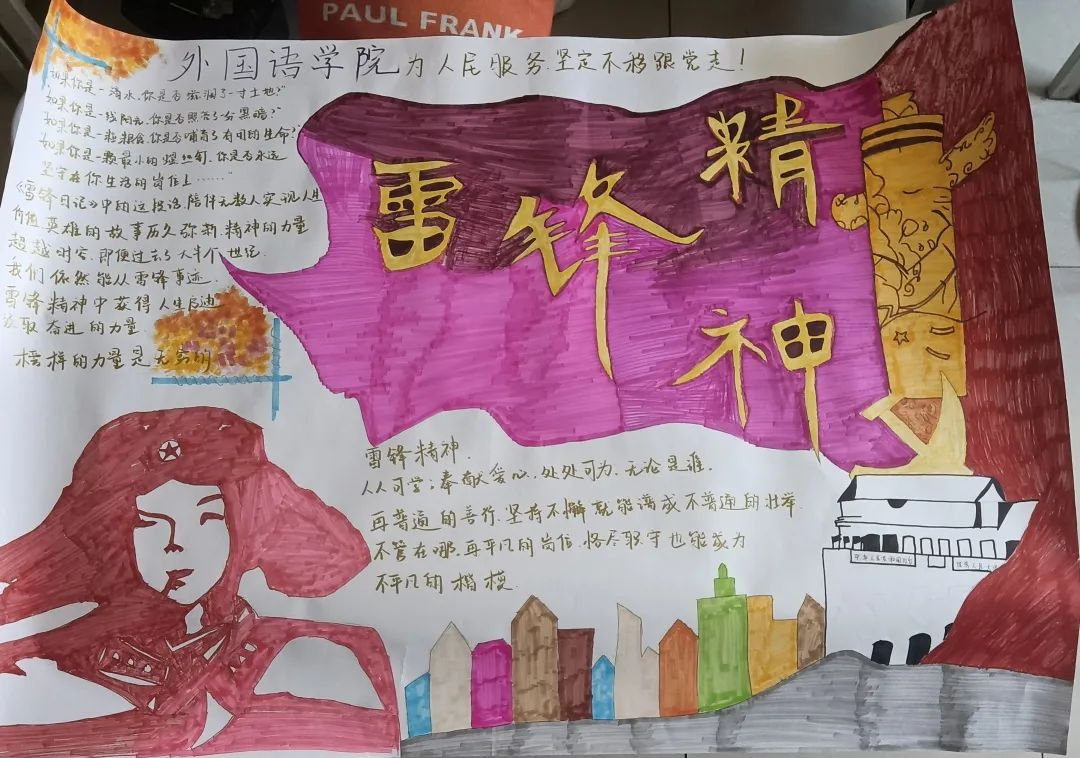 PAUL FRANK
外国语学院为人民服务.坚定不移跟党走!
"如果你是一滴水.你是否滋润了一寸土地?"
"如果你是一线阳光.你是否照亮了一分黑暗?"
"如果你是一粒粮食.你是否哺育了有用的生命?"
"如果你是一颗最小的螺丝钉.你是否永远
坚守在你生活的岗位上……"
《雷锋日记》中的这段话.陪伴无数人实现人生
价值.英雄的故事历久弥新.精神的力量
超越时空.即便过去了大半个世纪.
我们依然能从雷锋事迹
雷锋精神中获得人生启迪
汲取奋进的力量.
榜样的力量是无穷的
雷锋
精
神
雷锋精神.
人人可学;奉献爱心.处处可为.无论是谁.
再普通的善行.坚持不懈就能谱成不普通的壮举.
不管在哪.再平凡的岗位.恪尽职守也能成为
不平凡的楷模.